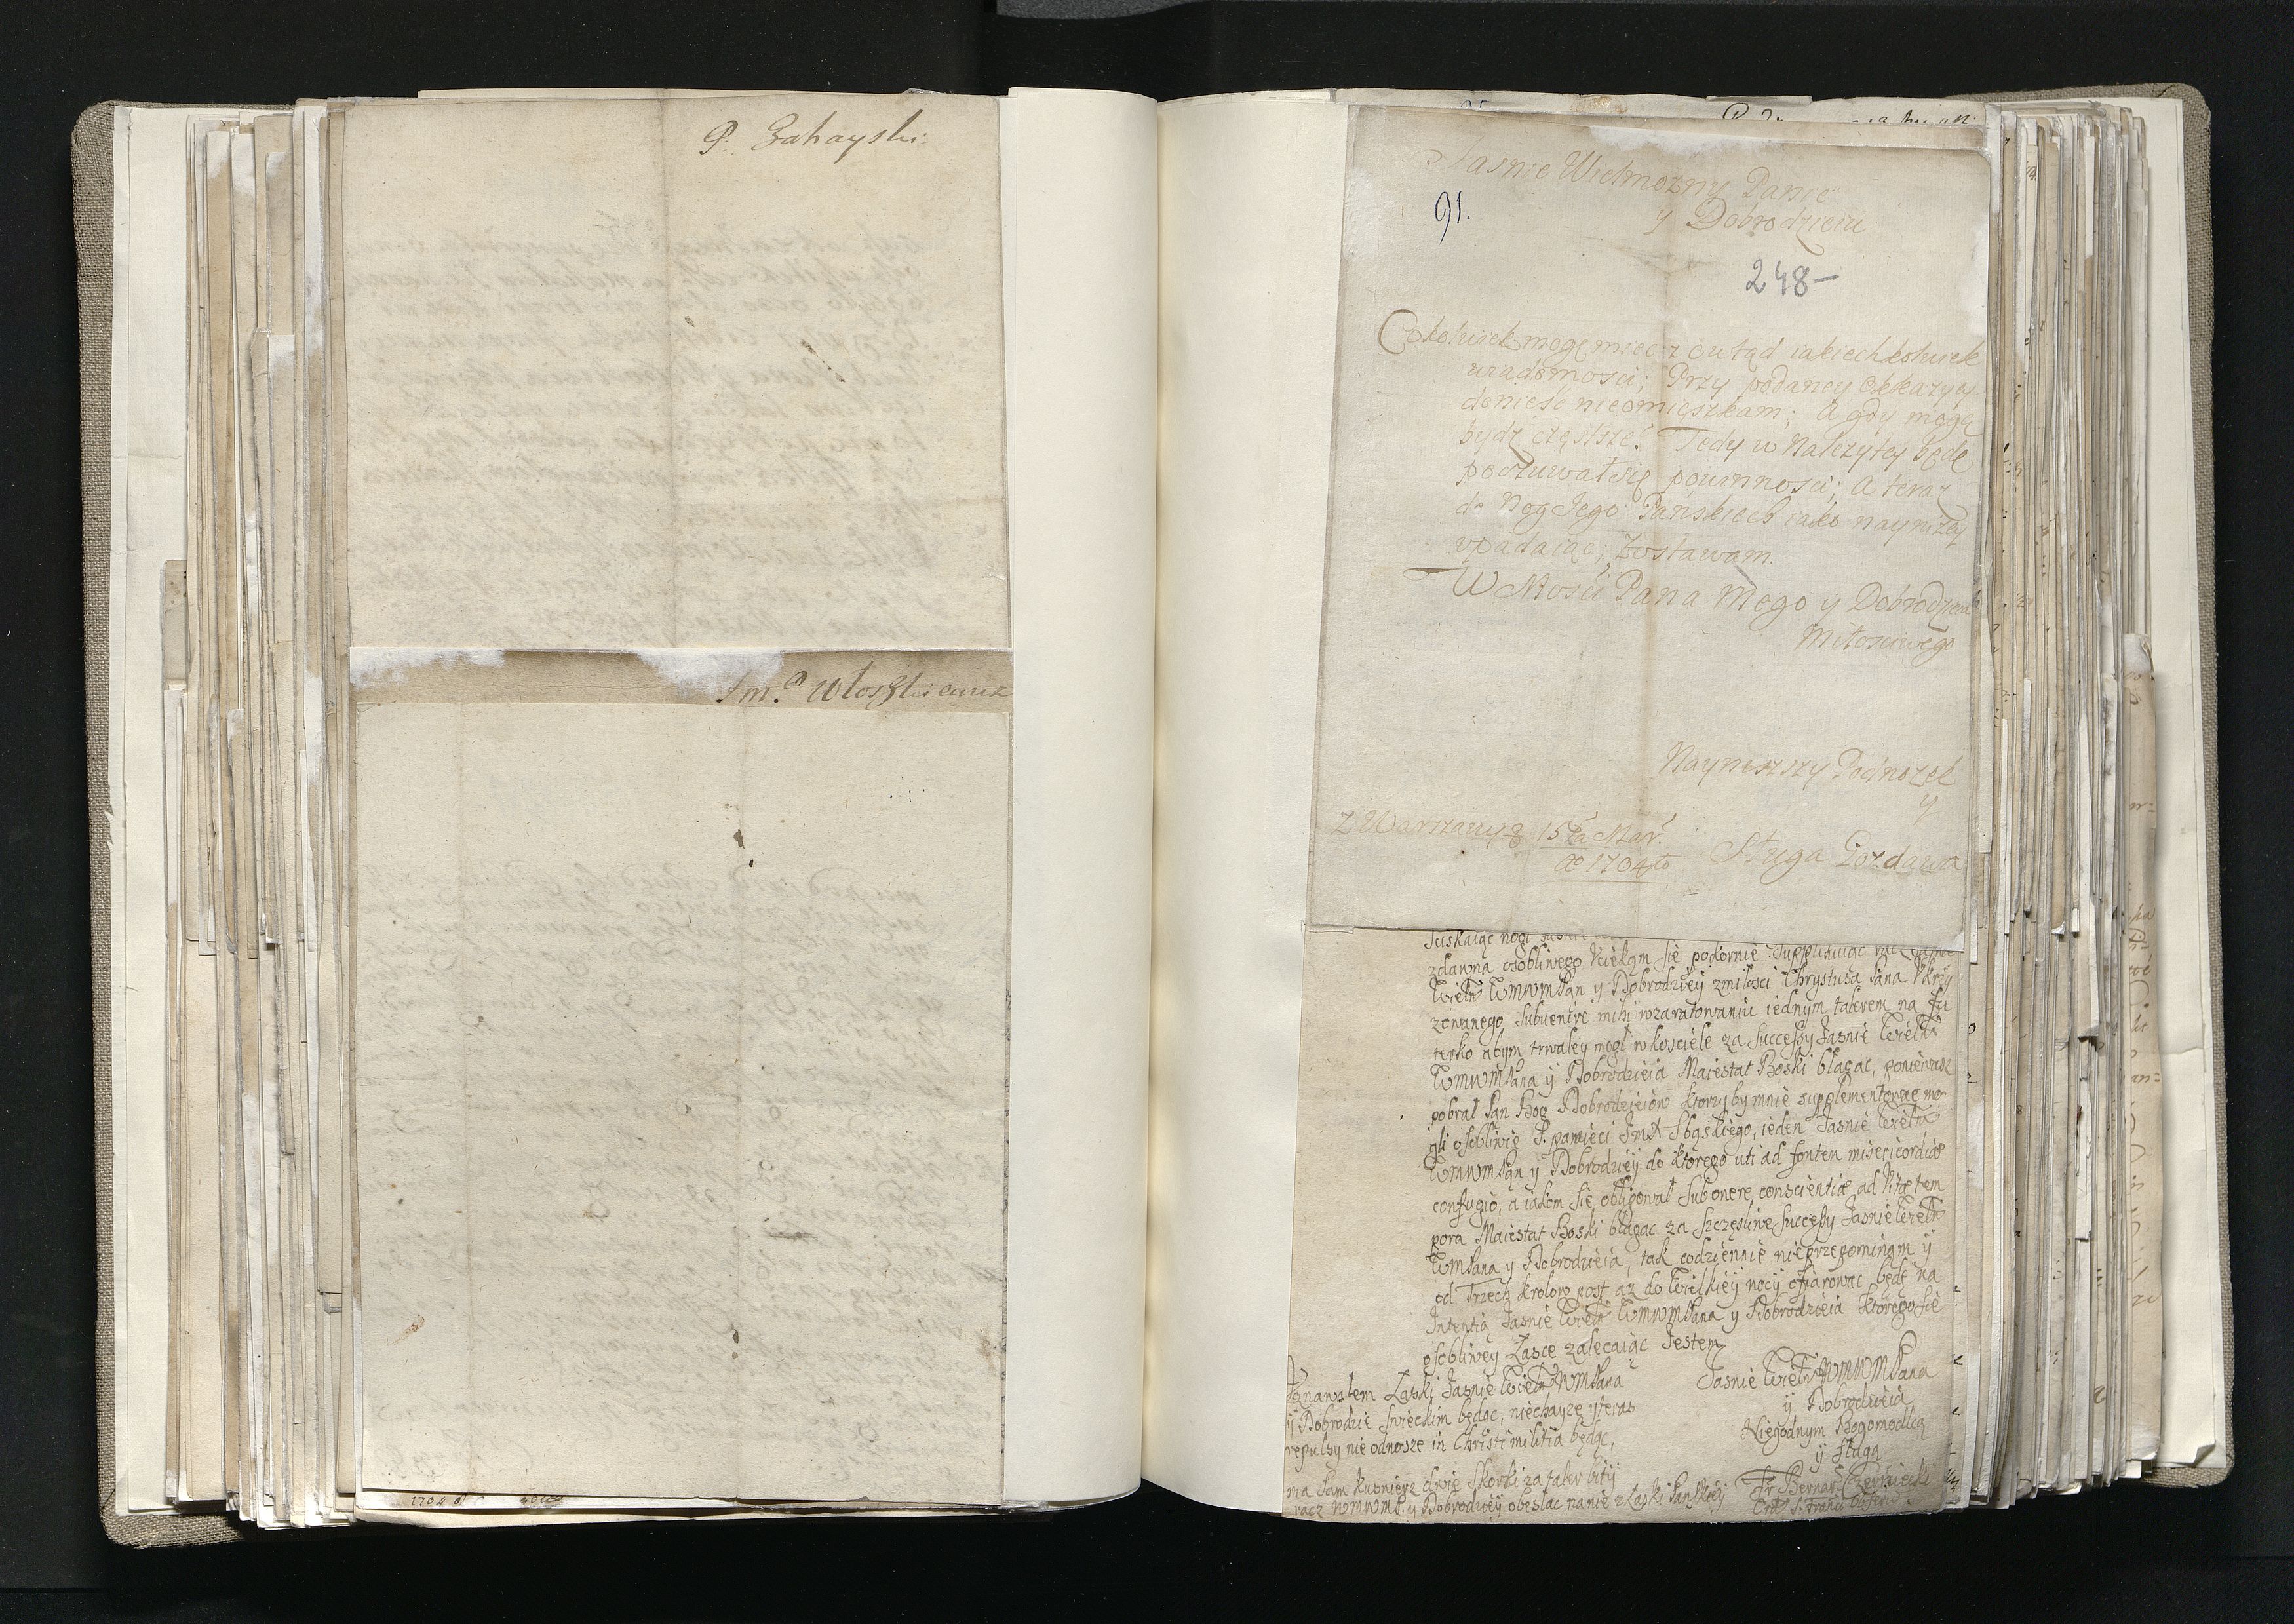 P. Zahayski
Jm. P. Włoszkiewicz
Jasnie Wielmozny Panie
y Dobrodzieiu
91.
248-
Cokolwiek mogę miec z outąd iakiechkolwiek
wiadomosci; Przy podaney Okkazyey
doniesc nieomieszkam; A gdy mogą
bydz częstsze? Tedy w Nalezytey będę
poczuwał się powinnosci; A teraz
do Nog Jego Pańskiech iako nayniżey
vpadaiąc; Zostawam.
WMosci Pana Mego y Dobrodzieia
Miłosciwego
Nayniszszy Podnozek
y
Z Warszawy 15 Mar.
1704to
Sługa Gozdawa
sciskaiąc nogi
zdawna osobliwego Vciekąm się pokornie Supplikuiąc racz
Wielm WMWMPan y Dobrodziey zmiłosci Chrystusa Pana Vkrzy
zowanego Subuenire mihi wzaratowaniu iednym talerem na fu
terko abym trwaley mogł w kosciele za Successy Jasnie Wielm
WMWMPana y Dobrodzieia Maiestat Boski błagac, poniewasz
pobrał Pan Bog Dobrodzieiow ktorzyby mnie supplementowac mo
gli osobliwie S. pamięci JmX Sbąskiego, ieden Jasnie Wielm
WMWMPan y Dobrodziey do ktorego uti ad fontem misericordiæ
confugio, a iakom się obligował sub onere conscientiæ ad Vitæ tem
pora Maiestat Boski błagac za szczęsliwe Successy Jasnie Wielm
WMPana y Dobrodzieia, tak codziennie nieprzepominam y
od Trzech krolow post az do Wielkiey nocy ofiarowac będę na
Intentią Jasnie Wielm WMWMPana y Dobrodzieia ktorego się
osobliwey Łasce zalecaiąc Jestem
Jasnie Wielm WMWMPana
y Dobrodzieia
Niegodnym Bogomodlcą
y sługą
Fr Bernar
Doznawałem Łaski Jasnie Wielm WMPana
y Dobrodzie swieckim będąc, niechayze yteraz
repulsy nie odnosze in Christi militia będąc,
ma tam kusnierz dwie skorki za taler bity
racz WMWMP. y Dobrodziey obesłac na nie z Łaski Panskiey